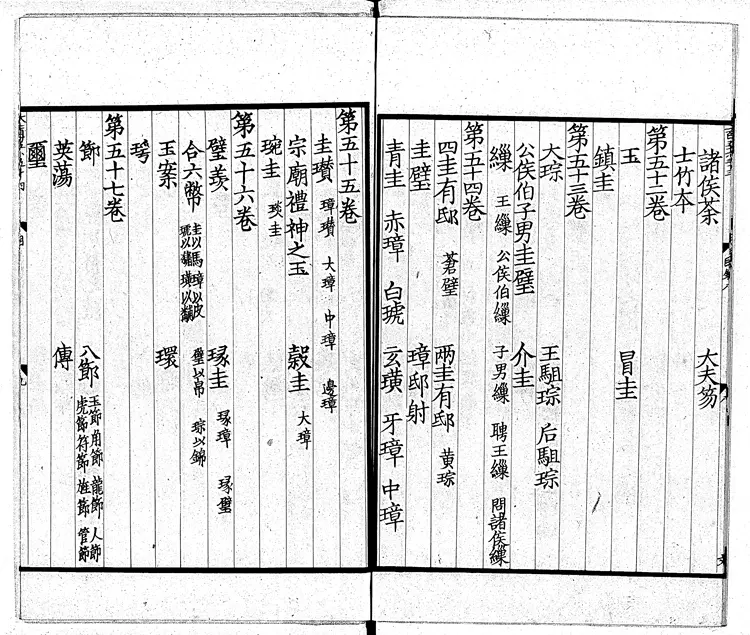 諸侯荼 大夫笏
士竹本
第五十二卷
玉 冒圭
鎮圭
第五十三卷
大琮 王駔琮 后駔琮
公侯伯子男圭璧 介圭
繅 王繅 公侯伯繅 子男繅 聘王繅 問諸侯繅
第五十四卷
四圭有邸 蒼璧 兩圭有邸 黄琮
圭璧 璋邸射
青圭 赤璋 白琥 玄璜 牙璋 中璋
第五十五卷
圭瓚 璋瓚 大璋 中璋 邊璋
宗廟禮神之玉 榖圭 大璋
琬圭 琰圭
第五十六卷
璧羨 琢圭 琢璋 琢璧
合六幣 圭以馬 璋以皮 璧以帛 琮以錦 琥以繡 璜以黼
玉案 環
琴
第五十七卷
節 八節 玉節 角節 龍節 人節 虎節 符節 旌節 管節
英蕩 傳
璽